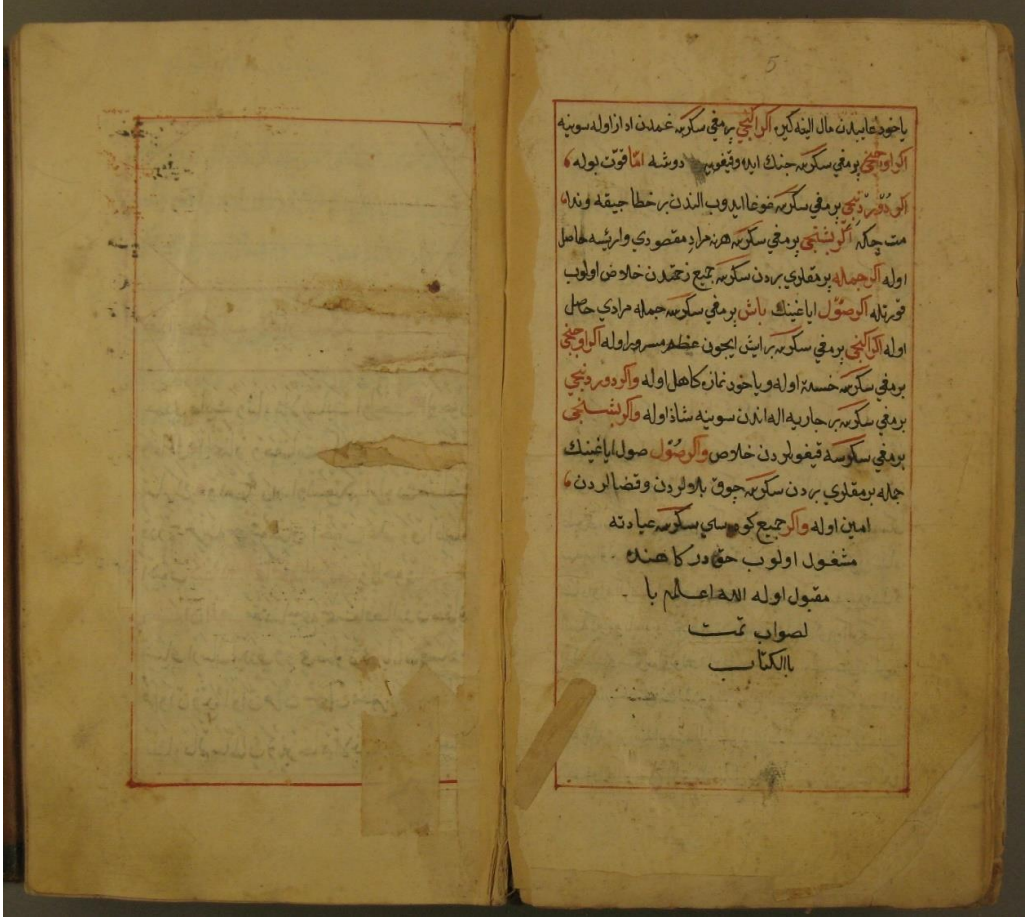 5
ياخود غايبدن مال الينه كيره اكر ايكنجى برمغى سكرسه غمدن ازاد اوله سوينه
اكر اوجنجى برمغى سكرسه جنك ايده وقيغويه دوشه امّا قوّت بوله
اكر دُورْدنجى برمغى سكرسه غوغا ايدوب الندن بر خطا جيقه وندا
مت چكه اكر بشنجى برمغى سكرسه هر نه مراد مقصودي وارايسه حاصل
اوله اكر جمله برمقلري بردن سكرسه جميع زحمتدن خلاص اولوب
قورتله اكر صُول اياغينك باش برمغى سكرسه جمله مرادي حاصل
اوله اكر ايكنجى برمغى سكرسه بر ايش ايجون عظيم مسرور اوله اكر اوجنجى
برمغى سكرسه خسته اوله ويا خود نمازه كاهل اوله واكر دوردنجى
برمغى سكرسه بر جاريه اله اندن سوينه شاذ اوله واكر بشنجى
برمغى سكرسه قيغولردن خلاص واكر صُول صول اياغينك
جمله برمقلري بردن سكرسه چوق بلالردن وقضالردن
امين اوله واكر جميع كوده سي سكرسه عبادته
مشغول اولوب حق دركاهنده
مقبول اوله الله اعلم با
لصواب تمت
باالكتاب